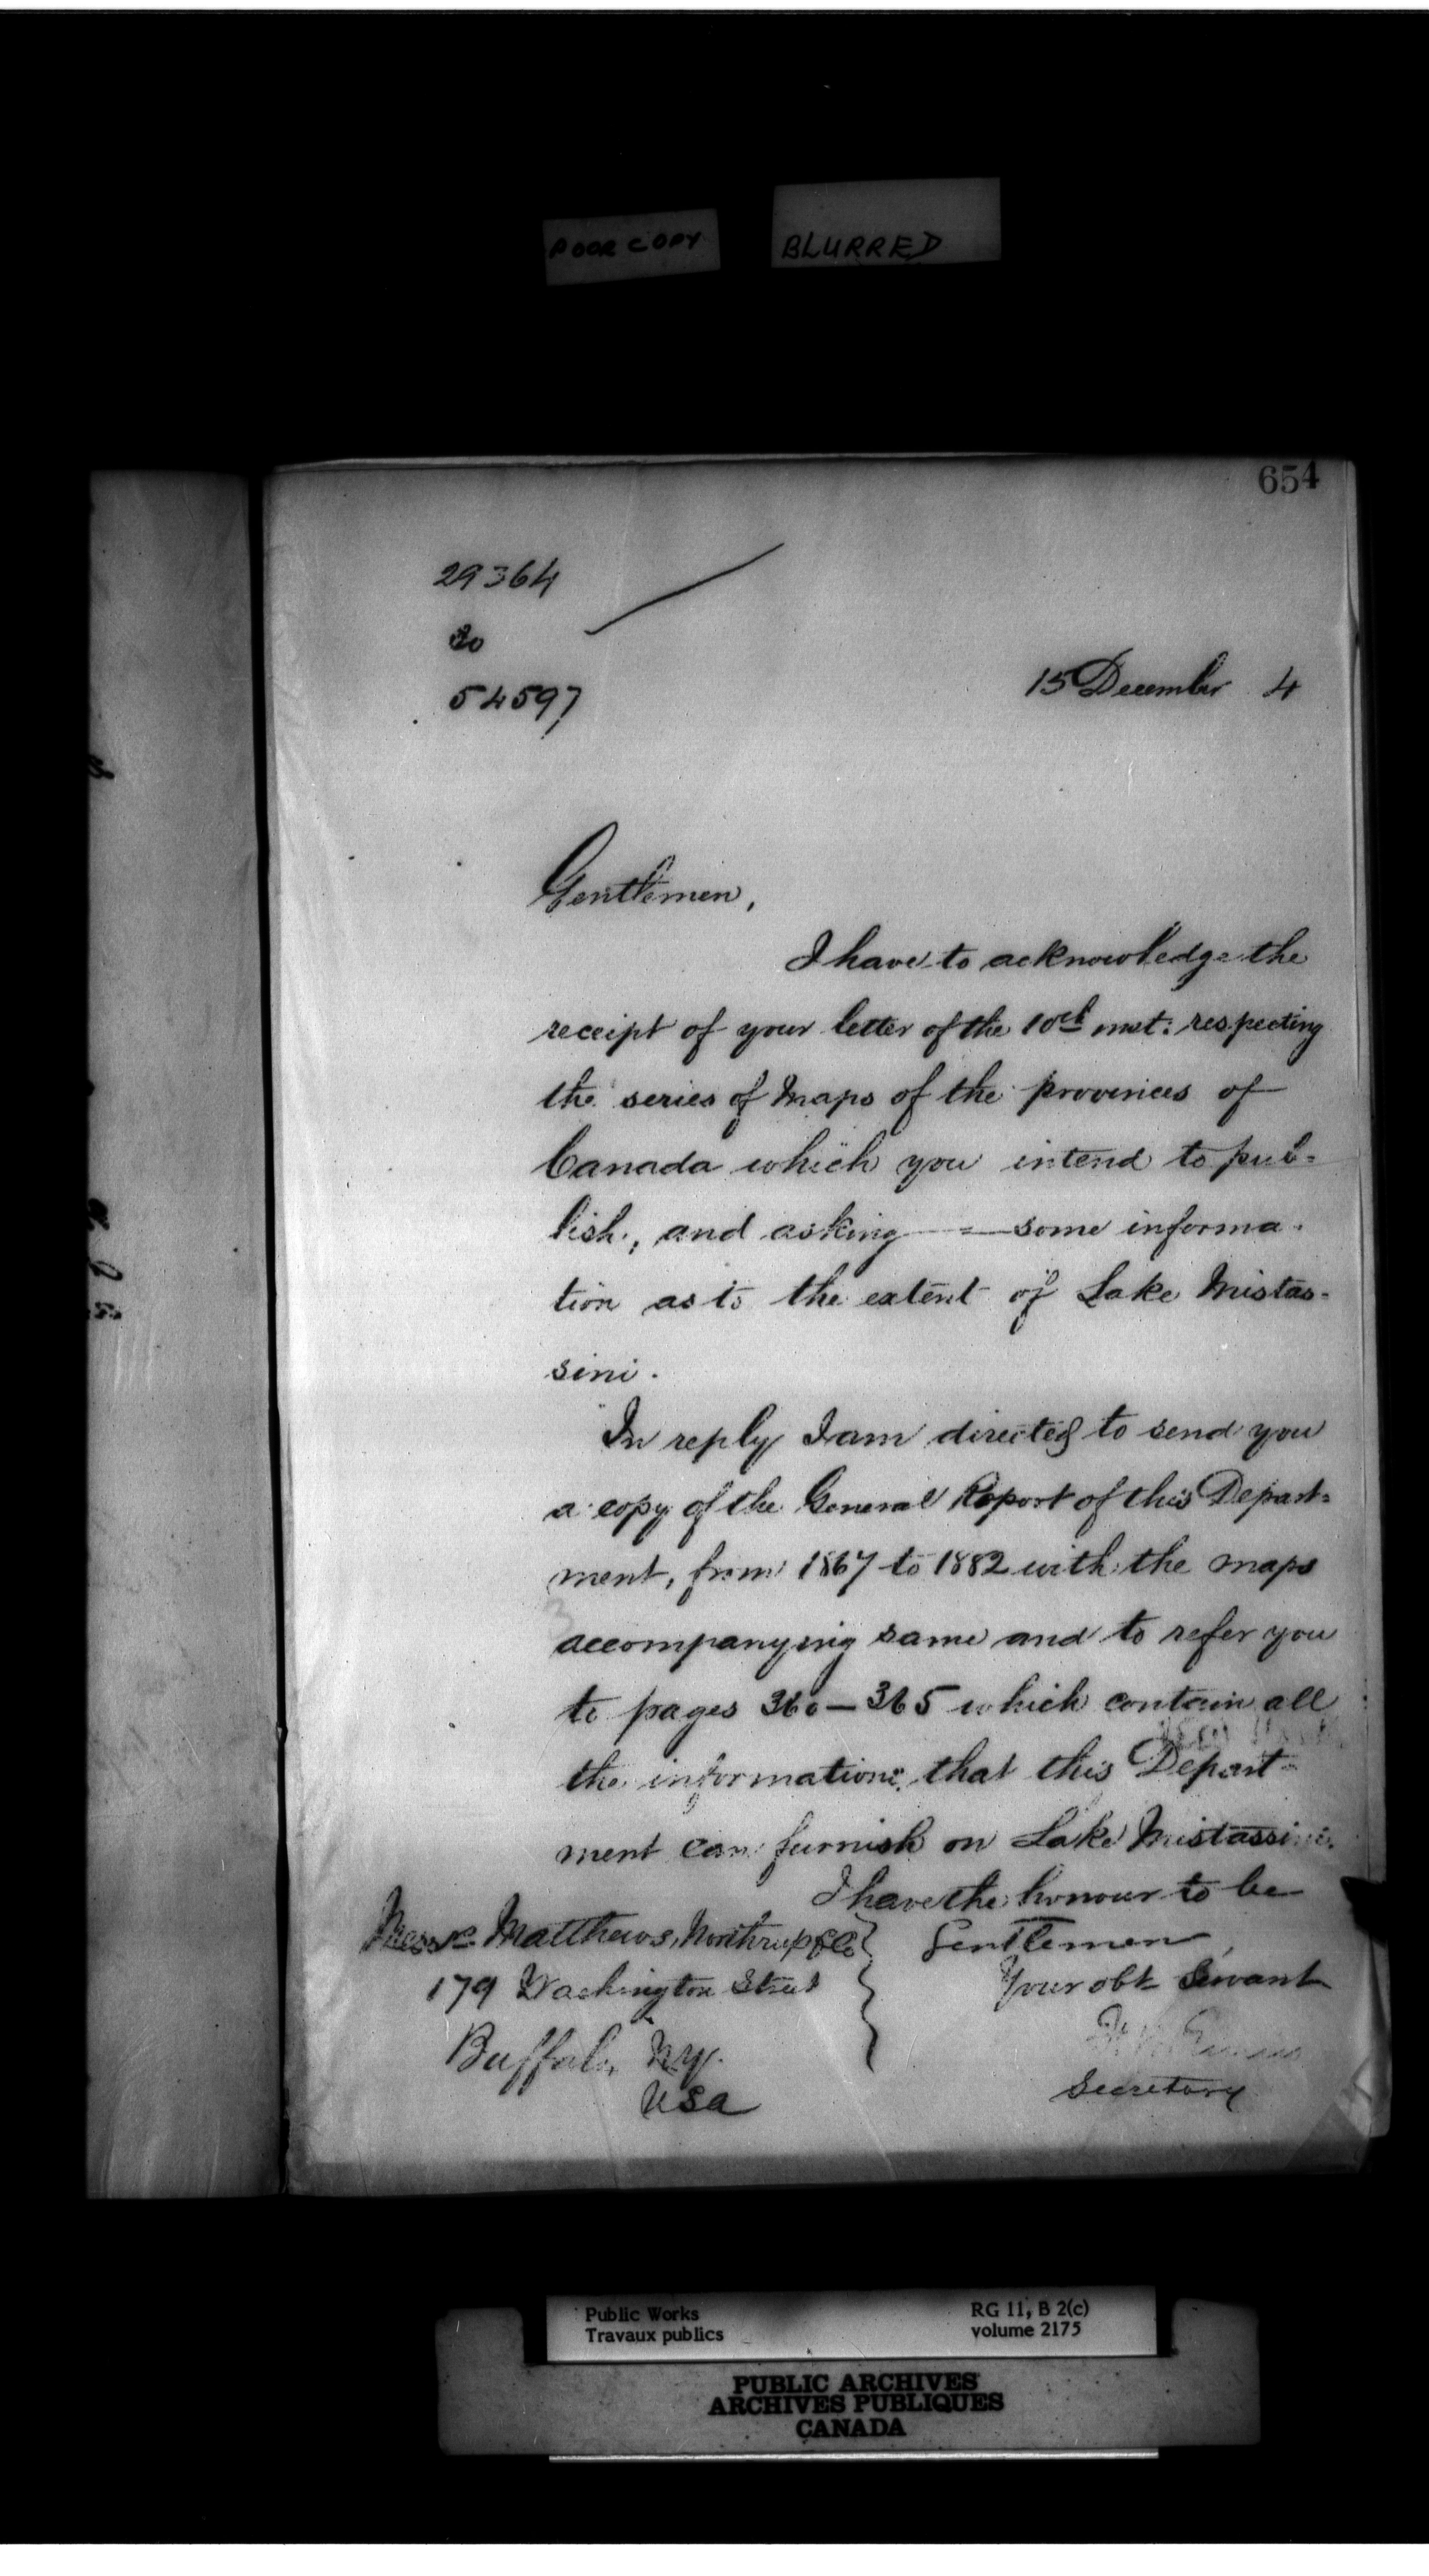 POOR COPY
BLURRED
654
29364
to
54597
15 December 4
Gentlemen,
I have to acknowledge the
receipt of your letter of the 10th inst: respecting
the series of Maps of the provinces of
Canada which you intend to pub=
lish, and asking some informa-
tion as to the extent of Lake Mistas=
sini.
In reply I am directed to send you
a copy of the General Report of this Depart=
ment, from 1867 to 1882 with the maps
accompanying same and to refer you
to pages 360–365 which contain all
the information that this Depart=
ment can furnish on Lake Mistassini.
I have the honour to be
Messrs Matthews, Northrup & Co
Gentlemen,
179 Washington Street
Your obt Servant
Buffalo, N.Y.
USA
Secretary
Public Works
Travaux publics
RG 11, B 2(c)
volume 2175
PUBLIC ARCHIVES
ARCHIVES PUBLIQUES
CANADA